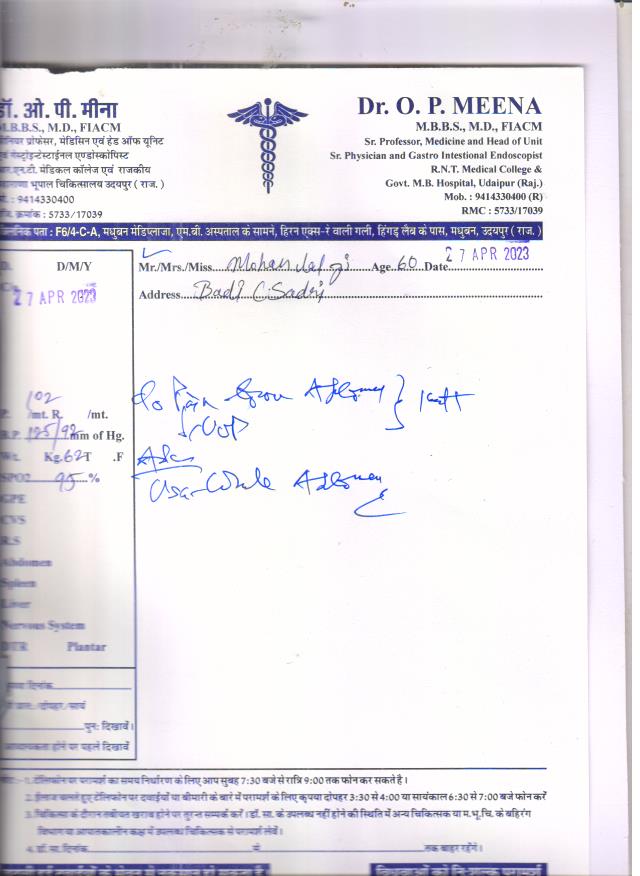 डॉ. ओ. पी. मीना
M.B.B.S., M.D., FIACM
प्रोफेसर, मेडिसिन एवं हेड ऑफ यूनिट
एवं गेस्ट्रोइन्टेस्टाईनल एण्डोस्कोपिस्ट
मेडिकल कॉलेज एवं राजकीय
भूपाल चिकित्सालय उदयपुर ( राज. )
. : 9414330400
क्रमांक : 5733/17039
Dr. O. P. MEENA
M.B.B.S., M.D., FIACM
Sr. Professor, Medicine and Head of Unit
Sr. Physician and Gastro Intestional Endoscopist
R.N.T. Medical College &
Govt. M.B. Hospital, Udaipur (Raj.)
Mob. : 9414330400 (R)
RMC : 5733/17039
पता : F6/4-C-A, मधुबन मेडिप्लाजा, एम.बी. अस्पताल के सामने, हिरन एक्स-रे वाली गली, हिंगड़ लैब के पास, मधुबन, उदयपुर ( राज. )
D/M/Y
27 APR 2023
Mr./Mrs./Miss. Mohan lal ji Age 60 Date 27 APR 2023
Address Badi Sadri
Pain Abdomen
102
P. /mt. R. /mt.
B.P. 125/92 mm of Hg.
Wt. Kg. 62 T .F
SPO2 95 %
Adv
USG- Whole Abdomen
GPE
CVS
R.S
Abdomen
Spleen
Liver
Nervous System
DTR Plantar
पुन: दिखावें।
आवश्यकता होने पर पहले दिखावें
नोट:- 1. टेलिफोन पर परामर्श का समय निर्धारण के लिए आप सुबह 7:30 बजे से रात्रि 9:00 तक फोन कर सकते है।
2. ईलाज चलते हुए टेलिफोन पर दवाईयों या बीमारी के बारे में परामर्श के लिए कृपया दोपहर 3:30 से 4:00 या सायंकाल 6:30 से 7:00 बजे फोन करें
3. चिकित्सा के दौरान तबीयत खराब होने पर तुरन्त सम्पर्क करें। डॉ. सा. के उपलब्ध नहीं होने की स्थिति में अन्य चिकित्सक या म.भू.चि. के बहिरंग
विभाग या आपातकालीन कक्ष में उपलब्ध चिकित्सक से परामर्श लेवें।
4. डॉ. सा. दिनांक से तक बाहर रहेंगे।